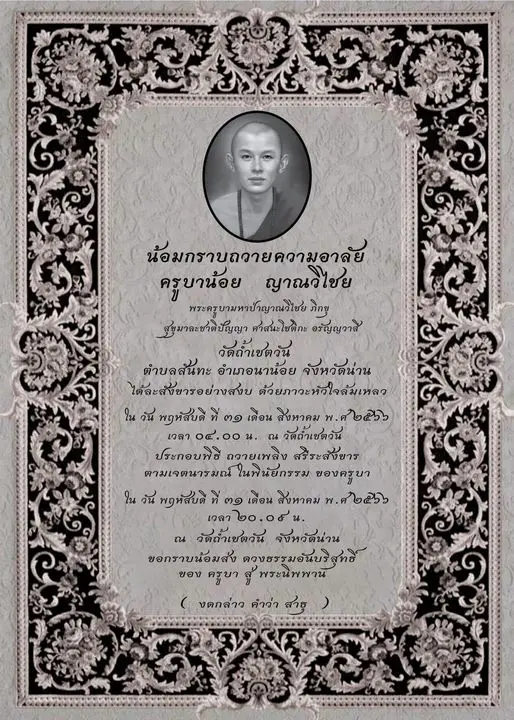 น้อมกราบถวายความอาลัย
ครูบาน้อย ญาณวิไชย
พระครูบามหาป่าญาณวิไชย ภิกขุ
สุขุมาละชาติปัญญา ศาสนะโชติกะ อรัญญวาสี
วัดถ้ำเชตวัน
ตำบลสันทะ อำเภอนาน้อย จังหวัดน่าน
ได้ละสังขารอย่างสงบ ด้วยภาวะหัวใจล้มเหลว
ใน วัน พฤหัสบดี ที่ ๓๑ เดือน สิงหาคม พ.ศ ๒๕๖๖
เวลา ๐๔.๐๐ น. ณ วัดถ้ำเชตวัน
ประกอบพิธี ถวายเพลิง สรีระสังขาร
ตามเจตนารมณ์ ในพินัยกรรม ของครูบา
ใน วัน พฤหัสบดี ที่ ๓๑ เดือน สิงหาคม พ.ศ ๒๕๖๖
เวลา ๒๐.๐๙ น.
ณ วัดถ้ำเชตวัน จังหวัดน่าน
ขอกราบน้อมส่ง ดวงธรรมอันบริสุทธิ์
ของ ครูบา สู่ พระนิพพาน
( งดกล่าว คำว่า สาธุ )